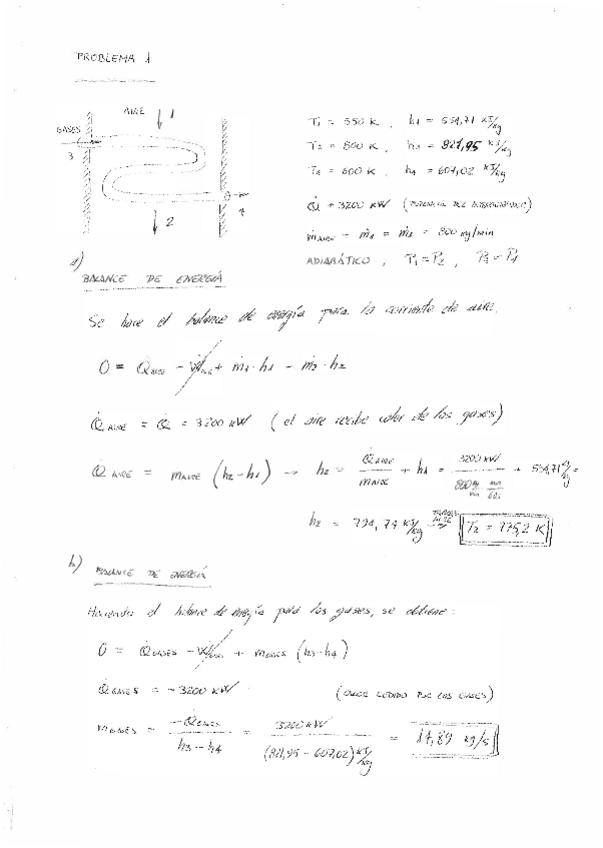 PROBLEMA 1
AIRE 1
GASES
3
4
2
T1 = 550 K, h1 = 554,71 kJ/kg
T3 = 800 K, h3 = 821,95 kJ/kg
T4 = 600 K, h4 = 607,02 kJ/kg
Q̇ = 3200 kW (POTENCIA DEL INTERCAMBIADOR)
ṁAIRE = ṁ1 = ṁ2 = 800 kg/min
ADIABÁTICO, P1 = P2, P3 = P4
a)
BALANCE DE ENERGÍA
Se hace el balance de energía para la corriente de aire.
0 = Q̇AIRE - ẆAIRE + ṁ1·h1 - ṁ2·h2
Q̇AIRE = Q̇ = 3200 kW (el aire recibe calor de los gases)
Q̇AIRE = ṁAIRE (h2-h1) → h2 = Q̇AIRE/ṁAIRE + h1 = 3200 kW / 800 kg/min · min/60s + 554,71 kJ/kg =
h2 = 794,74 kJ/kg → T2 = 775,2 K
b)
BALANCE DE ENERGÍA
Haciendo el balance de energía para los gases, se obtiene:
0 = Q̇GASES - Ẇ + ṁGASES (h3-h4)
Q̇GASES = -3200 kW (CALOR CEDIDO POR LOS GASES)
ṁGASES = -Q̇GASES / h3 - h4 = 3200 kW / (821,95 - 607,02) kJ/kg = 14,89 kg/s